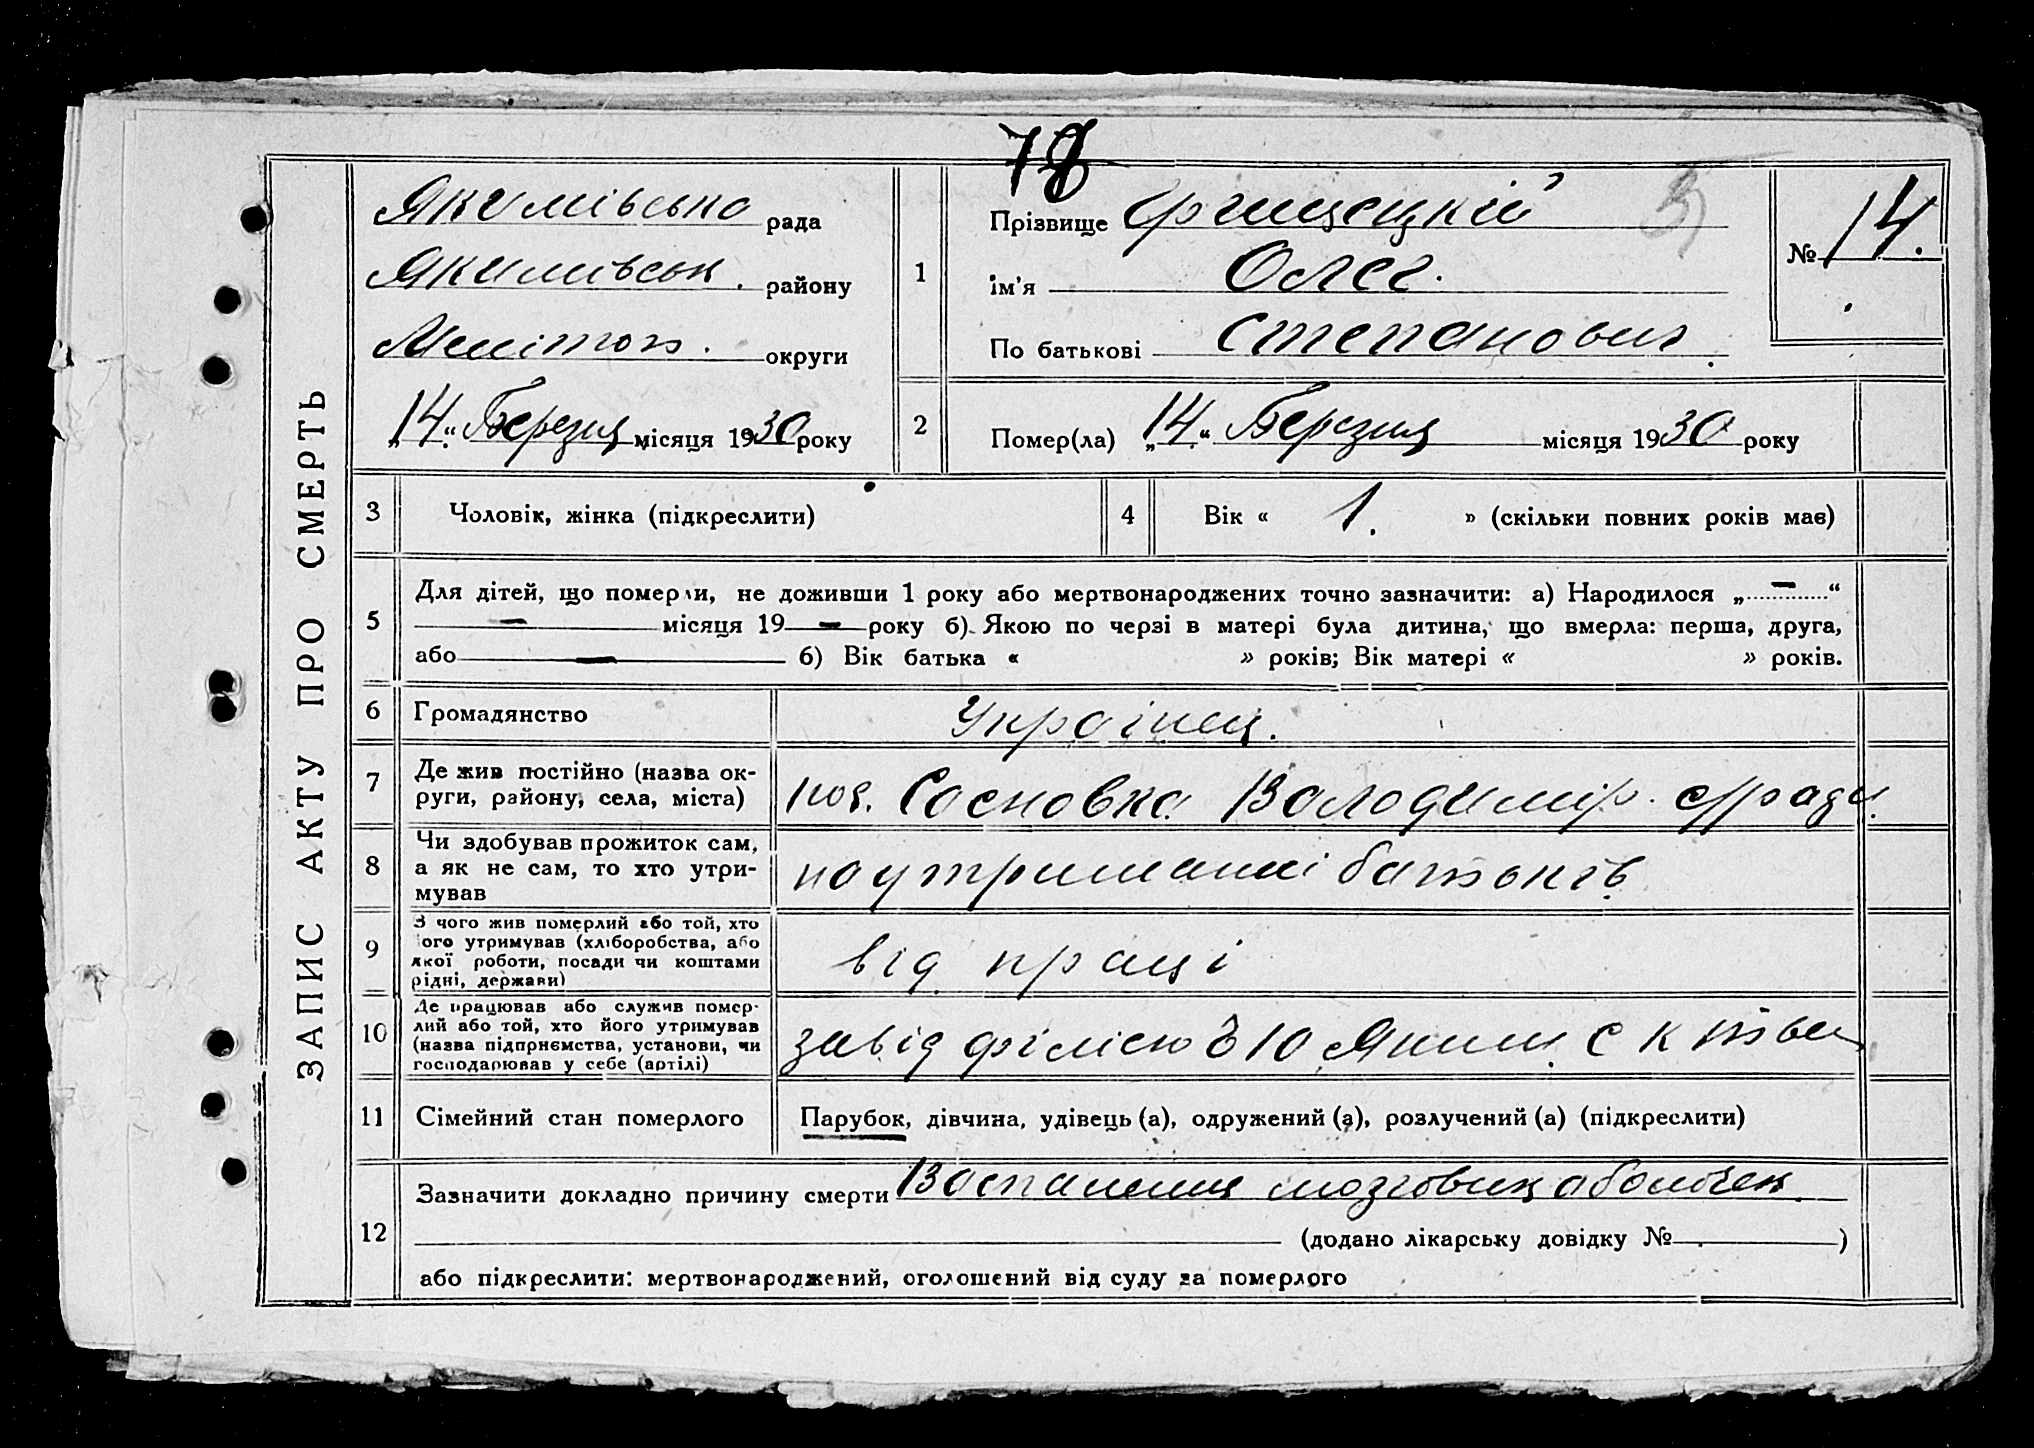 78
ЗАПИС АКТУ ПРО СМЕРТЬ
Якимівська рада
Якимівськ. району
Мелітоп. округи
„14“ Березня місяця 1930 року
1
Прізвище
ім'я Олег.
По батькові Степанович
№ 14.
2
Помер(ла) „14“ Березня місяця 1930 року
3
Чоловік, жінка (підкреслити)
4
Вік « 1. » (скільки повних років має)
5
Для дітей, що померли, не доживши 1 року або мертвонароджених точно зазначити: а) Народилося „ — “
— місяця 19 — року б) Якою по черзі в матері була дитина, що вмерла: перша, друга,
або — б) Вік батька « » років; Вік матері « » років.
6
Громадянство
Українец.
7
Де жив постійно (назва ок-
руги, району, села, міста)
пос. Сосновка Володимір.
8
Чи здобував прожиток сам,
а як не сам, то хто утри-
мував
на утриманні батьків
9
З чого жив померлий або той, хто
його утримував (хліборобства, або
якої роботи, посади чи коштами
рідні, держави)
від праці
10
Де працював або служив помер-
лий або той, хто його утримував
(назва підприємства, установи, чи
господарював у себе (артілі)
завід філією 10 Яким. С К тва
11
Сімейний стан померлого
Парубок, дівчина, удівець (а), одружений (а), розлучений (а) (підкреслити)
12
Зазначити докладно причину смерти Воспаления мозгових оболочек.
(додано лікарську довідку № )
або підкреслити: мертвонароджений, оголошений від суду за померлого